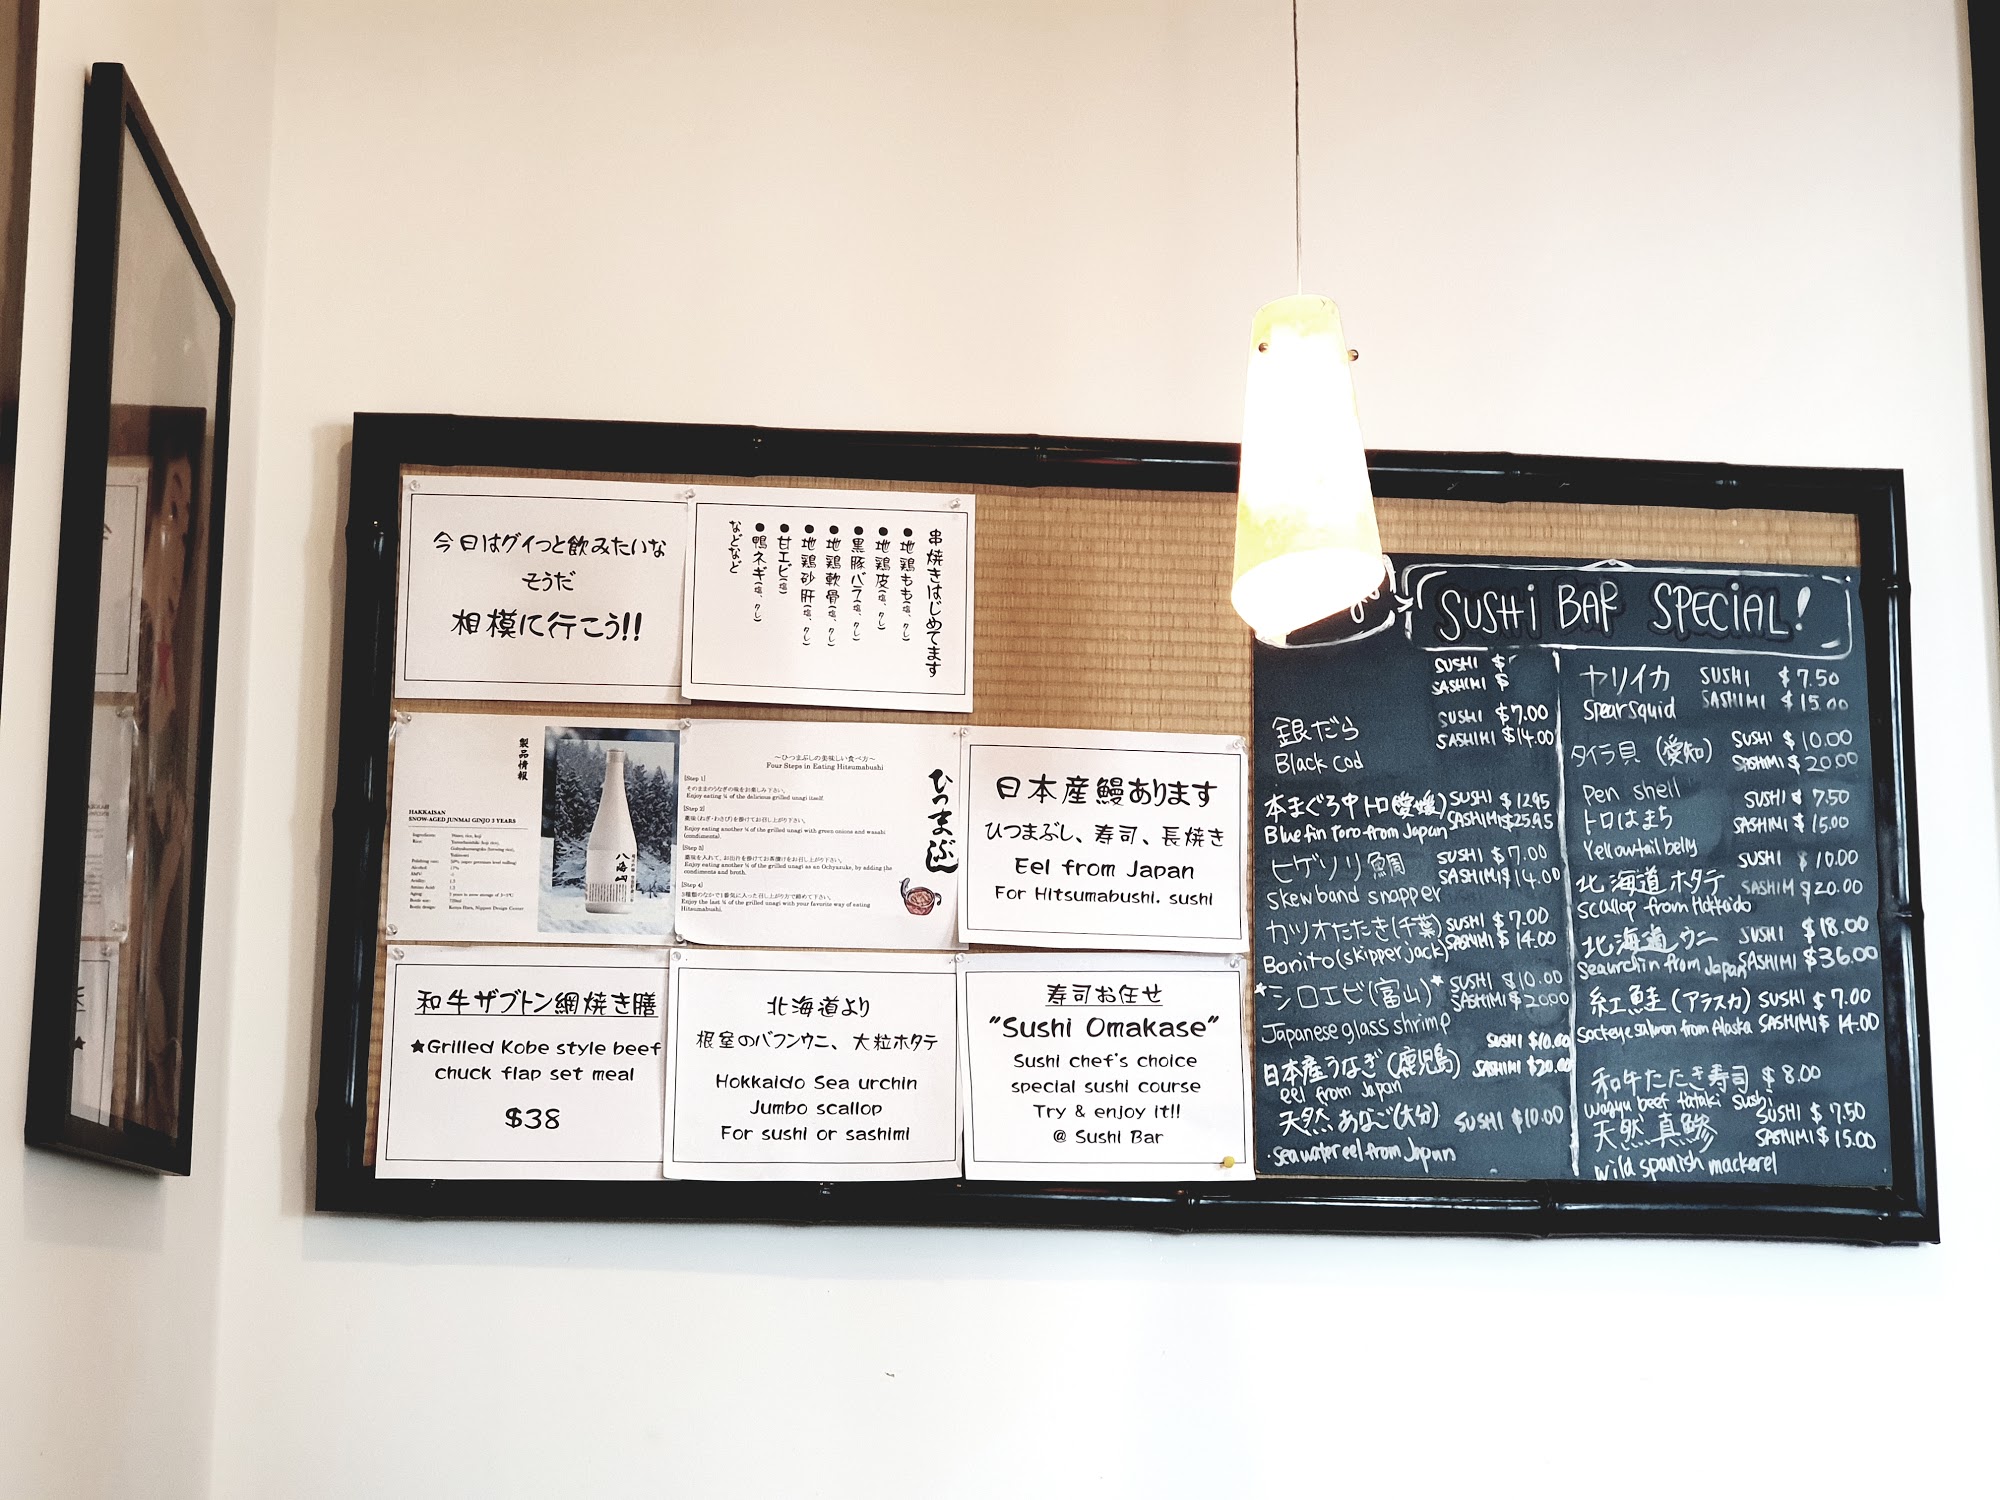 今日はグイっと飲みたいな
そうだ
相模に行こう!!
串焼きはじめてます
●地鶏もも(塩、タレ)
●地鶏皮(塩、タレ)
●黒豚バラ(塩、タレ)
●地鶏軟骨(塩、タレ)
●地鶏砂肝(塩、タレ)
●甘エビ(塩)
●鴨ネギ(塩、タレ)
などなど
製品情報
HAKKAISAN
SNOW-AGED JUNMAI GINJO 3 YEARS
八海山
~ひつまぶしの美味しい食べ方~
Four Steps in Eating Hitsumabushi
[Step 1]
そのままのうなぎの味をお楽しみ下さい。
Enjoy eating ¼ of the delicious grilled unagi itself.
[Step 2]
薬味(ねぎ・わさび)を掛けてお召し上がり下さい。
Enjoy eating another ¼ of the grilled unagi with green onions and wasabi
(condiments).
[Step 3]
薬味を入れて、お出汁を掛けてお茶漬けをお召し上がり下さい。
Enjoy eating another ¼ of the grilled unagi as an Ochyazuke, by adding the
condiments and broth.
[Step 4]
3種類のなかで1番気に入った召し上がり方で締めて下さい。
Enjoy the last ¼ of the grilled unagi with your favorite way of eating
Hitsumabushi.
ひつまぶし
日本産鰻あります
ひつまぶし、寿司、長焼き
Eel from Japan
For Hitsumabushi. sushi
和牛ザブトン網焼き膳
★Grilled Kobe style beef
chuck flap set meal
$38
北海道より
根室のバフンウニ、大粒ホタテ
Hokkaido Sea urchin
Jumbo scallop
For sushi or sashimi
寿司お任せ
"Sushi Omakase"
Sushi chef's choice
special sushi course
Try & enjoy it!!
@ Sushi Bar
SUSHI BAR SPECIAL!
SUSHI $
SASHIMI $
銀だら SUSHI $7.00
Black Cod SASHIMI $14.00
本まぐろ中トロ(愛媛) SUSHI $12.95
Blue fin toro from Japan SASHIMI $25.95
ヒゲソリ鯛 SUSHI $7.00
skewband snapper SASHIMI $14.00
カツオたたき(千葉) SUSHI $7.00
Bonito (skipper jack) SASHIMI $14.00
*シロエビ(富山)* SUSHI $10.00
Japanese glass shrimp SASHIMI $20.00
日本産うなぎ(鹿児島) SUSHI $10.00
eel from Japan SASHIMI $20.00
天然あなご(大分) SUSHI $10.00
sea water eel from Japan
ヤリイカ SUSHI $7.50
Spear squid SASHIMI $15.00
タイラ貝(愛知) SUSHI $10.00
Pen shell SASHIMI $20.00
トロはまち SUSHI $7.50
Yellowtail belly SASHIMI $15.00
北海道ホタテ SUSHI $10.00
scallop from Hokkaido SASHIMI $20.00
北海道ウニ SUSHI $18.00
Sea urchin from Japan SASHIMI $36.00
紅鮭(アラスカ) SUSHI $7.00
Sockeye salmon from Alaska SASHIMI $14.00
和牛たたき寿司 $8.00
Wagyu beef tataki Sushi
天然真鯵 SUSHI $7.50
wild spanish mackerel SASHIMI $15.00